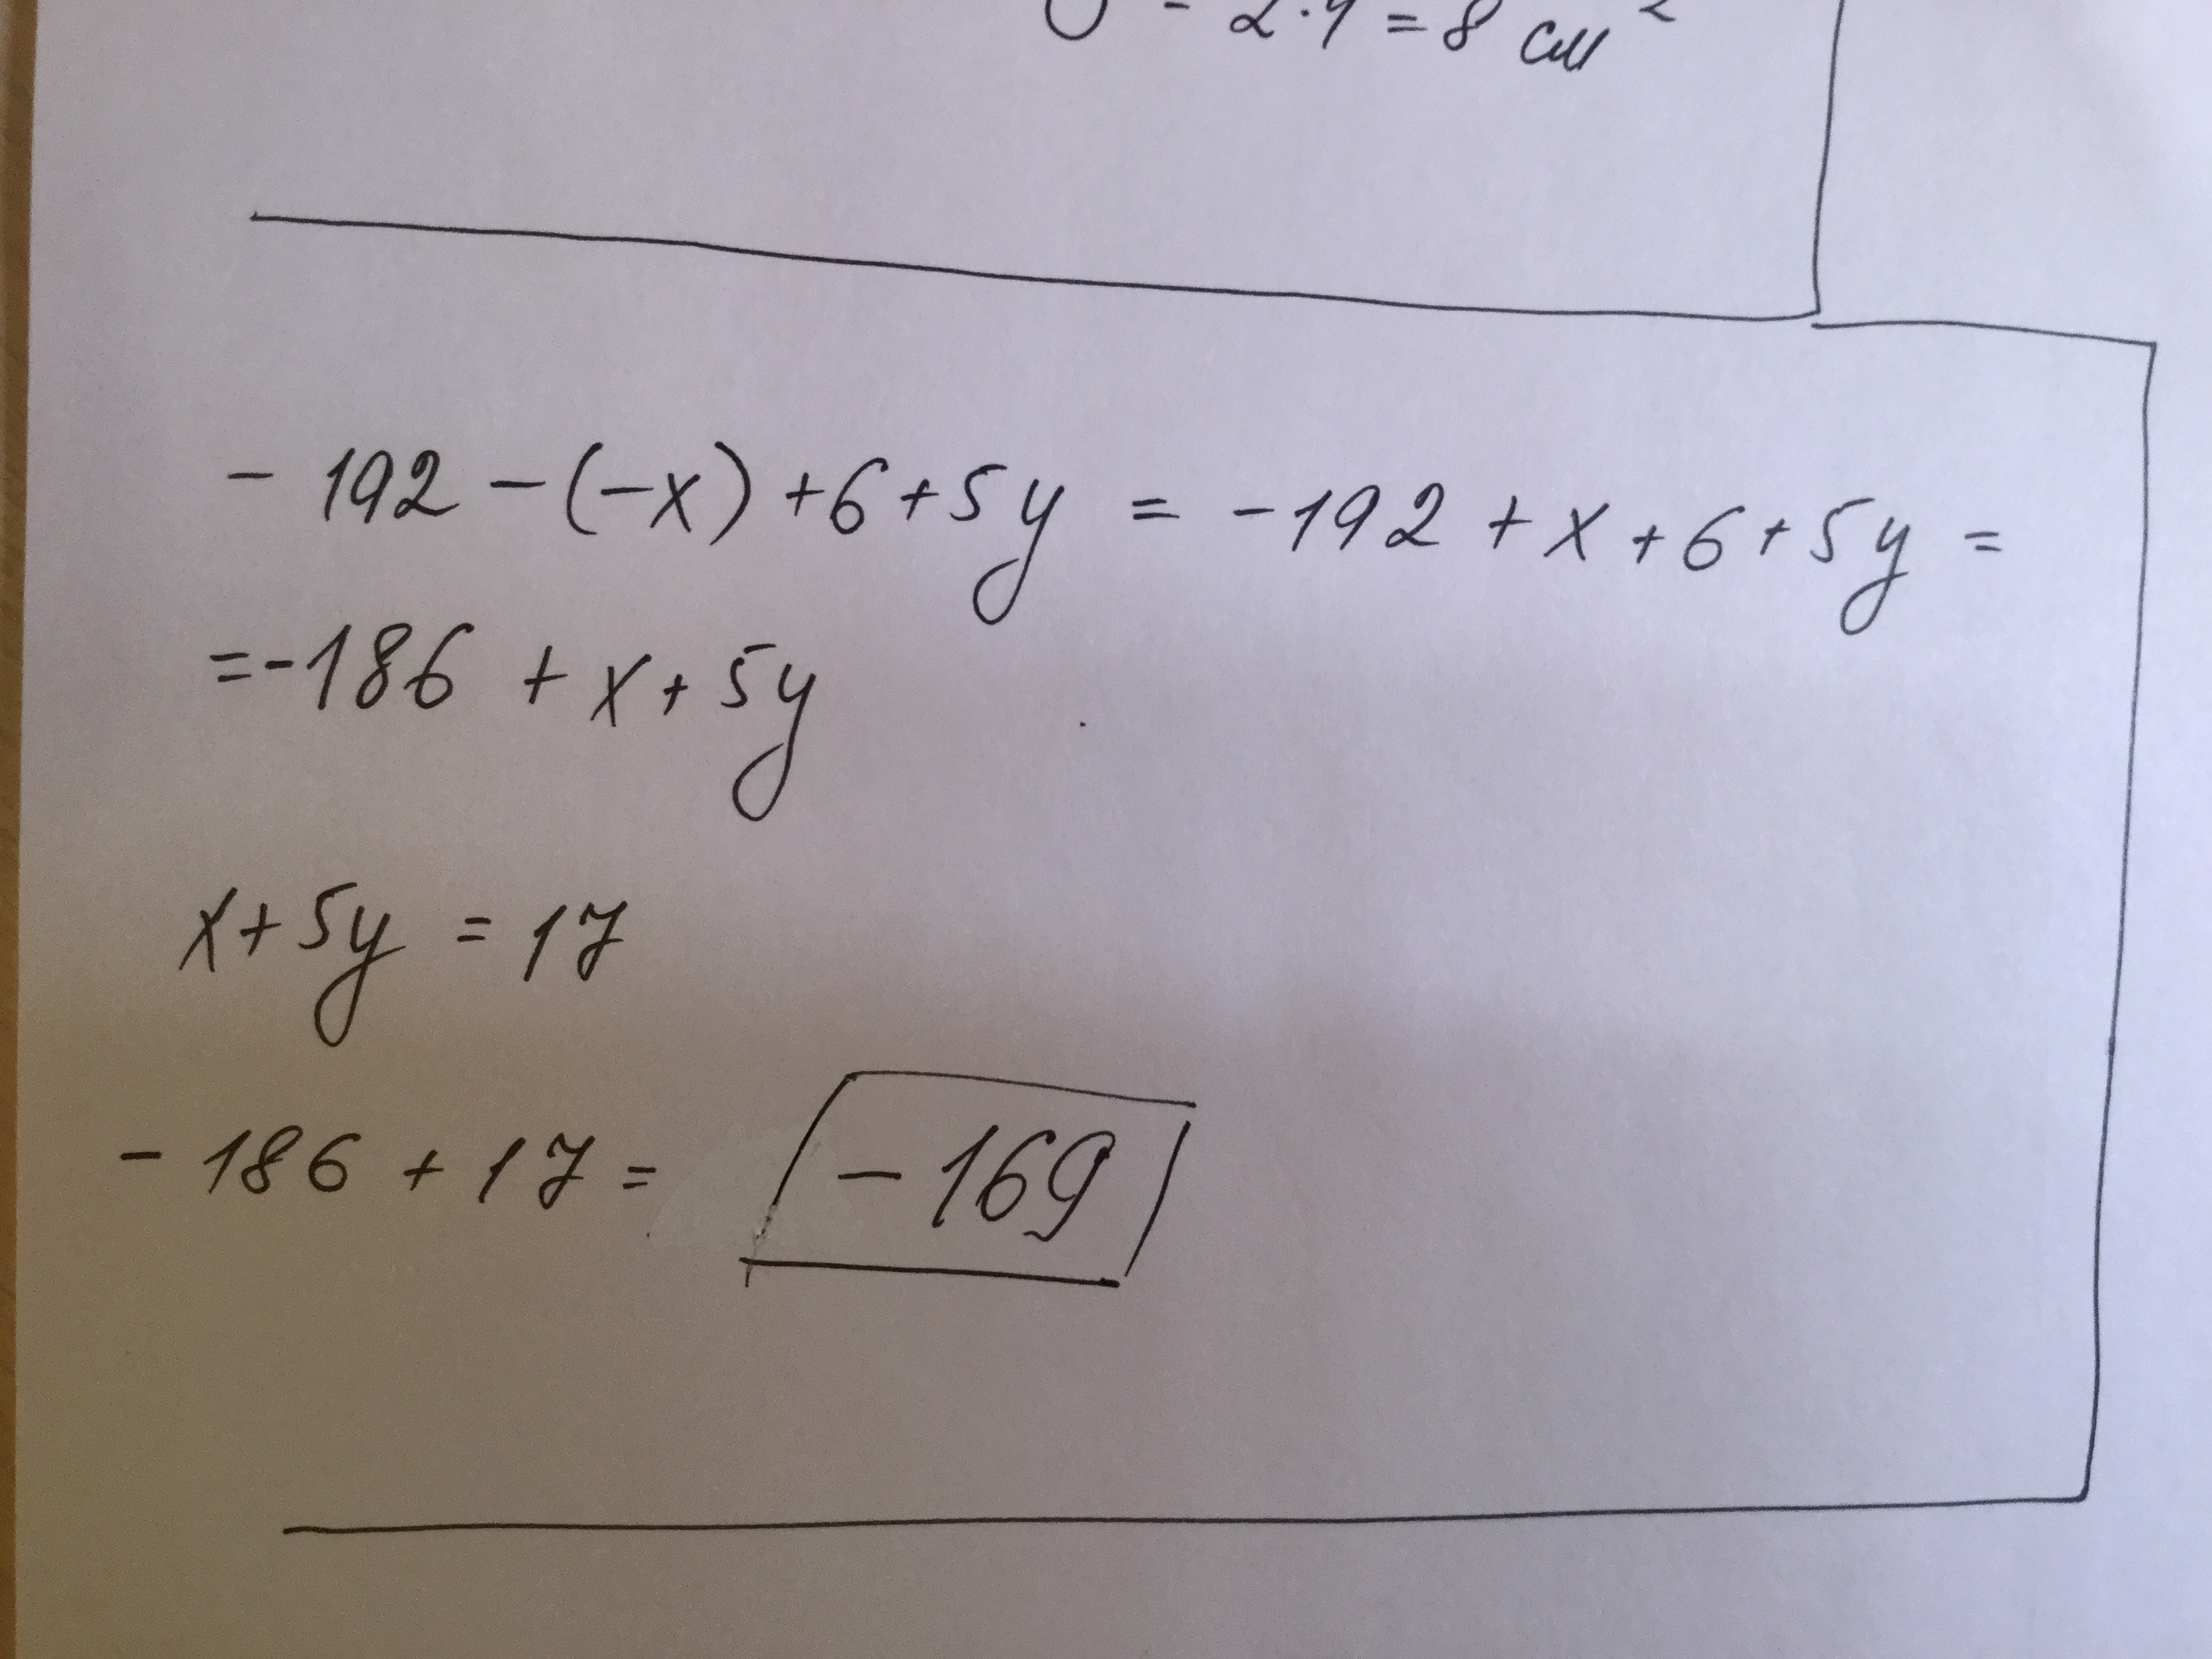 - 2·4 = 8 см²
- 192 - (-x) + 6 + 5y = -192 + x + 6 + 5y =
= -186 + x + 5y
x + 5y = 17
- 186 + 17 = -169